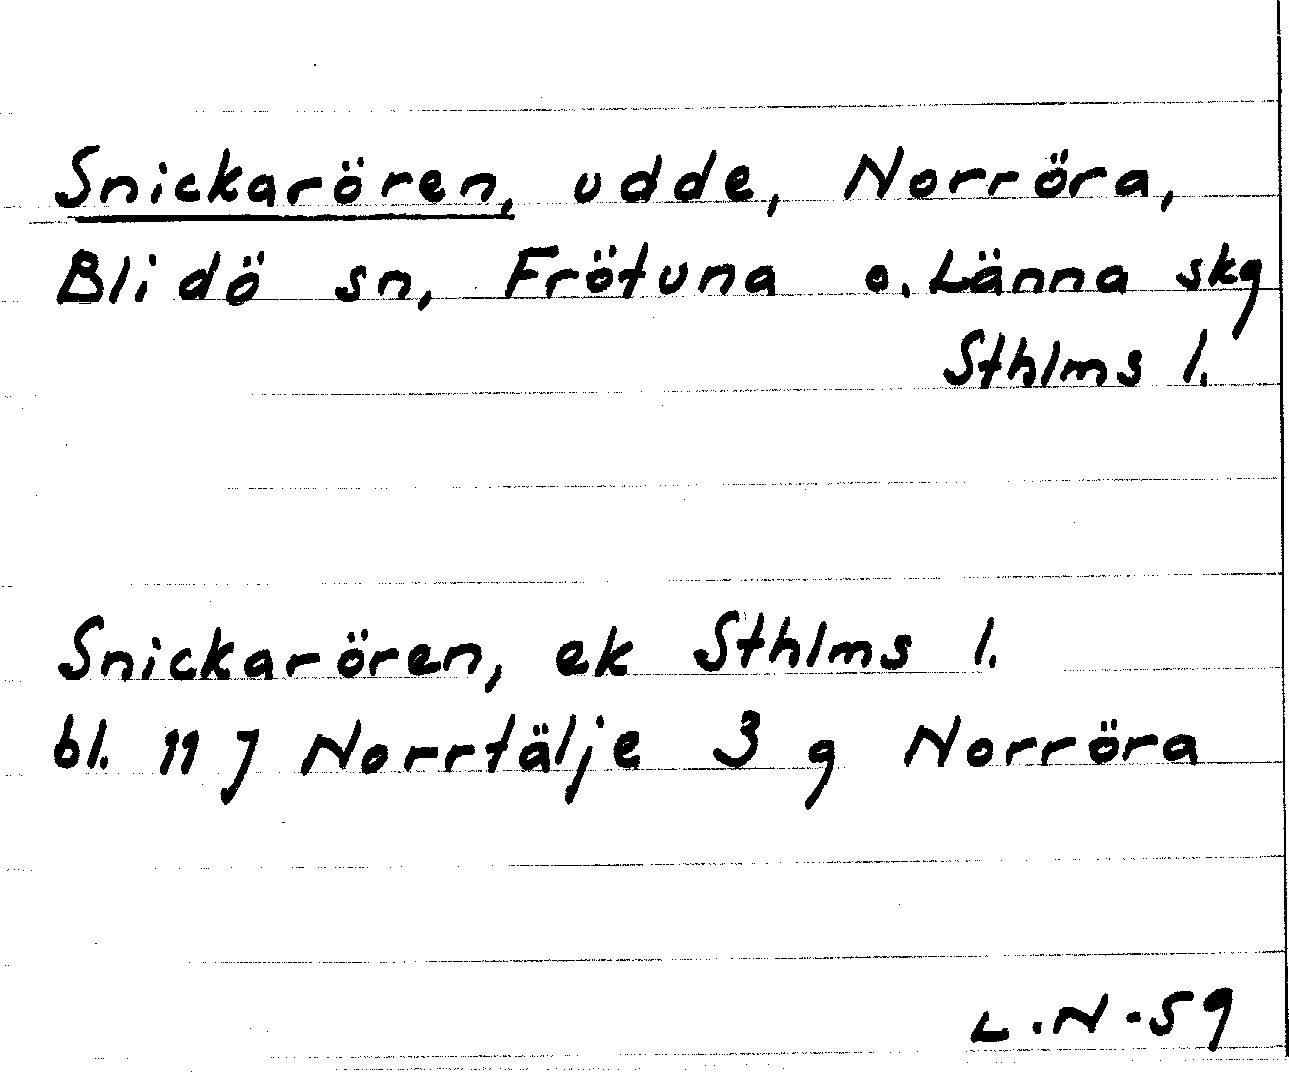 Snickarören, udde, Norröra,
Blidö sn, Frötuna o. Länna skg
Sthlms l.
Snickarören, ek Sthlms l.
bl. 11 J Norrtälje 3 g Norröra
L.N-59